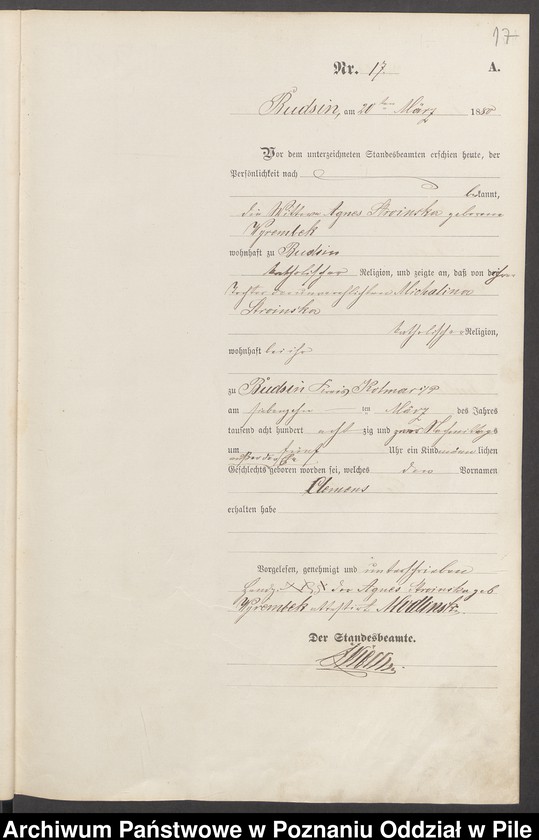 17
Nr. 17. A.
Budsin, am 20ten März 1880
Vor dem unterzeichneten Standesbeamten erschien heute, der
Persönlichkeit nach
bekannt,
die Wittwe Agnes Stroinska geborene
Wyrembek
wohnhaft zu Budsin
katholischer Religion, und zeigte an, daß von der
Tochter der unverehelichten Michalina
Stroinska
katholischer Religion,
wohnhaft bei ihr
zu Budsin Kreis Kolmar i/P
am siebenzehn ten März des Jahres
tausend acht hundert acht zig und zwar Nachmittags
um fünf Uhr ein Kind männlichen
Geschlechts geboren worden sei, welches den Vornamen
Clemens
erhalten habe
Vorgelesen, genehmigt und unterschrieben
Handz. XXX der Agnes Stroinska geb.
Wyrembek attestirt
Der Standesbeamte.
Archiwum Państwowe w Poznaniu Oddział w Pile